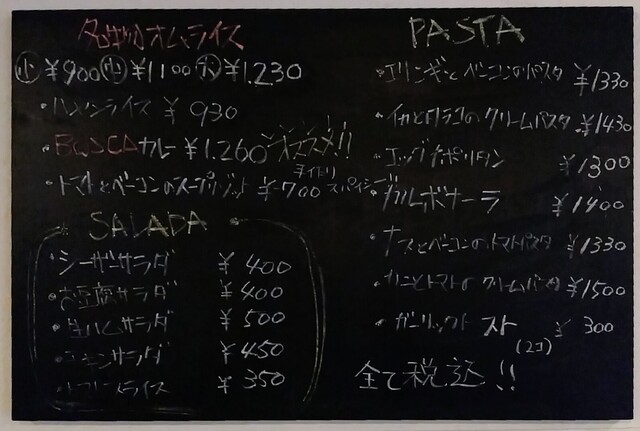 名物オムライス
小 ¥900 中 ¥1100 大 ¥1.230
・ハヤシライス ¥930
・BOSCAカレー ¥1.260 オススメ!!
・トマトとベーコンのスープリゾット ¥700
スパイシー
SALADA
・シーザーサラダ ¥400
・お豆腐サラダ ¥400
・生ハムサラダ ¥500
・チキンサラダ ¥450
ライス ¥350
PASTA
・エリンギとベーコンのパスタ ¥1330
・イカとタラコのクリームパスタ ¥1430
・エッグナポリタン ¥1300
・カルボナーラ ¥1400
・ナスとベーコンのトマトパスタ ¥1330
・カニとトマトのクリームパスタ ¥1500
・ガーリックトスト ¥300
(2コ)
全て税込!!